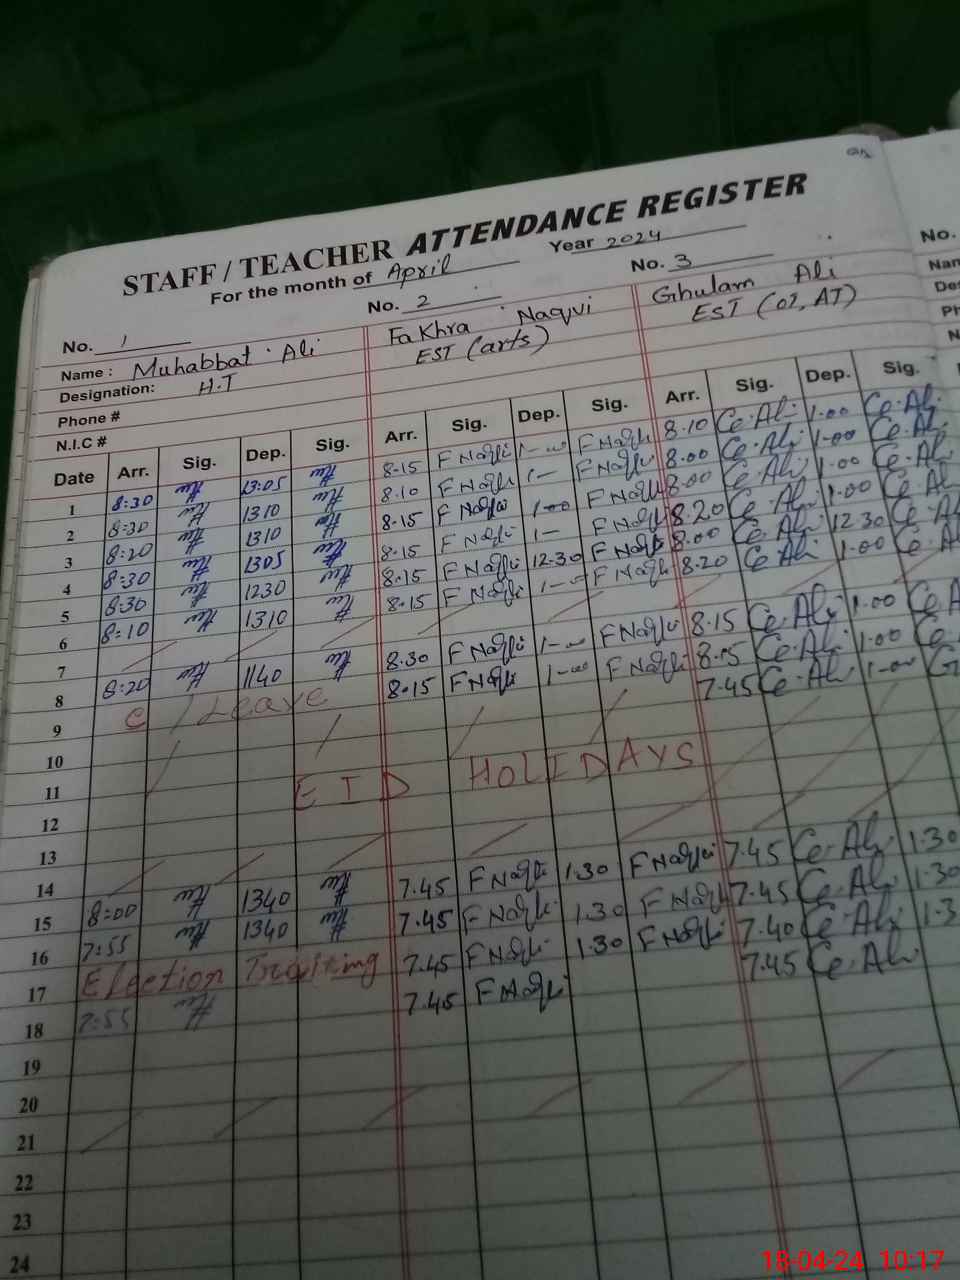 STAFF / TEACHER ATTENDANCE REGISTER
For the month of April Year 2024
No. 1 No. 2 No. 3 No.
Name : Muhabbat Ali Fakhra Naqvi Ghulam Ali Nam
Designation: H.T EST (arts) EST (02, AT) Des
Phone # Ph
N.I.C # N
Date Arr. Sig. Dep. Sig. Arr. Sig. Dep. Sig. Arr. Sig. Dep. Sig.
1 8:30 13:05 8.15 F Naqvi 1-00 F Naqvi 8.10 1.00
2 8:30 1310 8.10 F Naqvi 1- F Naqvi 8.00 1.00
3 8:20 1310 8.15 F Naqvi 1-00 F Naqvi 8.00 1.00
4 8:30 1305 8.15 F Naqvi 1- F Naqvi 8.20 1.00
5 8:30 1230 8.15 F Naqvi 12.30 F Naqvi 8.00 12.30
6 8:10 1310 8.15 F Naqvi 1-00 F Naqvi 8.20 1.00
7
8 8:20 1140 8.30 F Naqvi 1-00 F Naqvi 8.15 1.00
9 C / Leave 8.15 F Naqvi 1-00 F Naqvi 8.15 1.00
10 7.45 1-00
11
12 EID HOLIDAYS
13
14
15 8:00 1340 7.45 F Naqvi 1.30 F Naqvi 7.45 1.30
16 7:55 1340 7.45 F Naqvi 1.30 F Naqvi 7.45 1.30
17 Election Training 7.45 F Naqvi 1.30 F Naqvi 7.40 1.3
18 7:55 7.45 F Naqvi 7.45
19
20
21
22
23
24
18-04-24 10:17